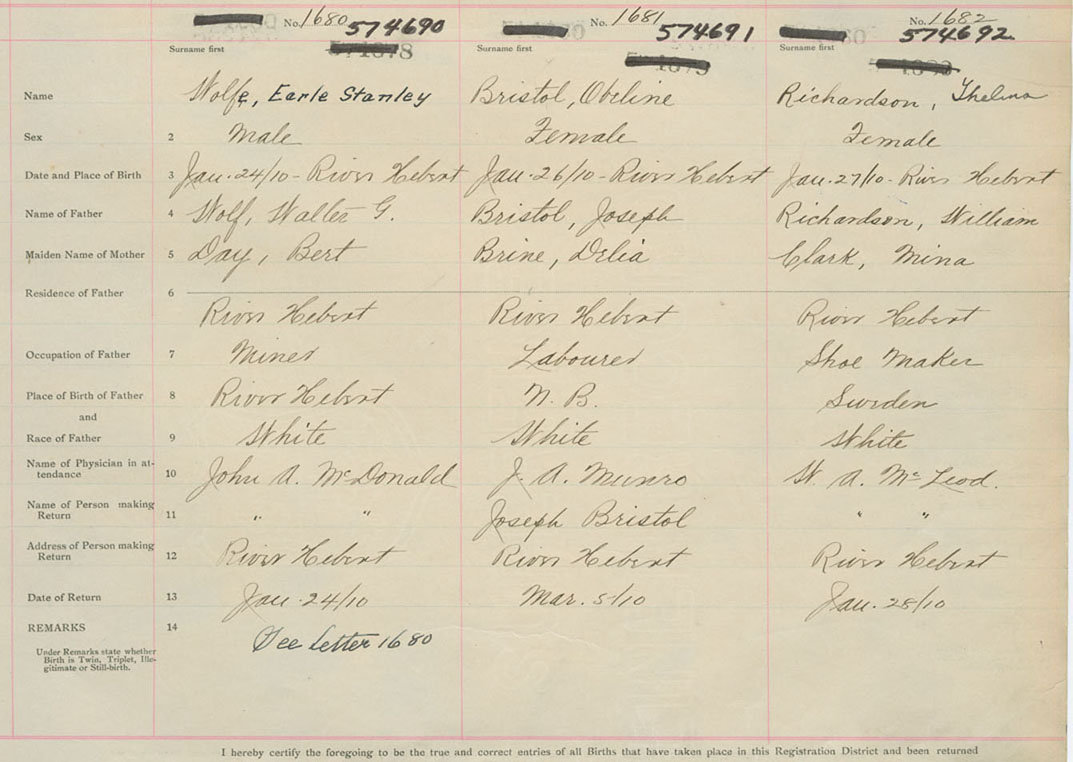 No. 1680 574690 No. 1681 574691 No. 1682 574692
Surname first Surname first Surname first
Name Wolfe, Earle Stanley Bristol, Obeline Richardson, Thelma
Sex 2 Male Female Female
Date and Place of Birth 3 Jan. 24/10 - River Hebert Jan. 26/10 - River Hebert Jan. 27/10 - River Hebert
Name of Father 4 Wolf, Walter G. Bristol, Joseph Richardson, William
Maiden Name of Mother 5 Day, Bert Brine, Delia Clark, Mina
Residence of Father 6
River Hebert River Hebert River Hebert
Occupation of Father 7 Miner Labourer Shoe Maker
Place of Birth of Father 8 River Hebert N. B. Sweden
and
Race of Father 9 White White White
Name of Physician in at-
tendance 10 John A. McDonald J. A. Munro W. A. McLeod.
Name of Person making
Return 11 " " Joseph Bristol " "
Address of Person making
Return 12 River Hebert River Hebert River Hebert
Date of Return 13 Jan. 24/10 Mar. 5/10 Jan. 28/10
REMARKS 14
See Letter 1680
Under Remarks state whether
Birth is Twin, Triplet, Ille-
gitimate or Still-birth.
I hereby certify the foregoing to be the true and correct entries of all Births that have taken place in this Registration District and been returned